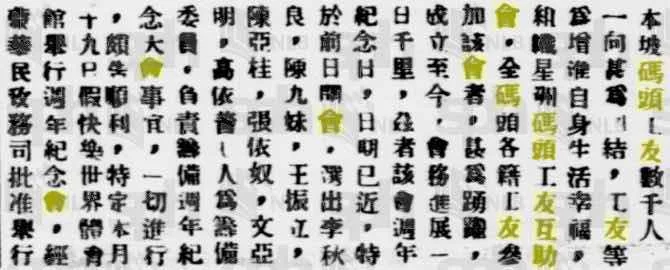 本坡碼頭工友數千人
一向甚為團結，工友等
為增進自身生活幸福，
組織星洲碼頭工友互助
會，全碼頭各籍工友參
加該會者，甚為踴躍，
成立至今，會務進展一
日千里，茲者該會週年
紀念日，日期已近，特
於前日開會，選出李秋
良，陳九妹，王振立，
陳亞桂，張依奴，文亞
明，高依人為籌備
委員，負責籌備週年紀
念大會事宜，一切進行
，頗順利，特定本月
十九日假快樂世界體育
館舉行週年紀念會，經
蒙華民政務司批准舉行